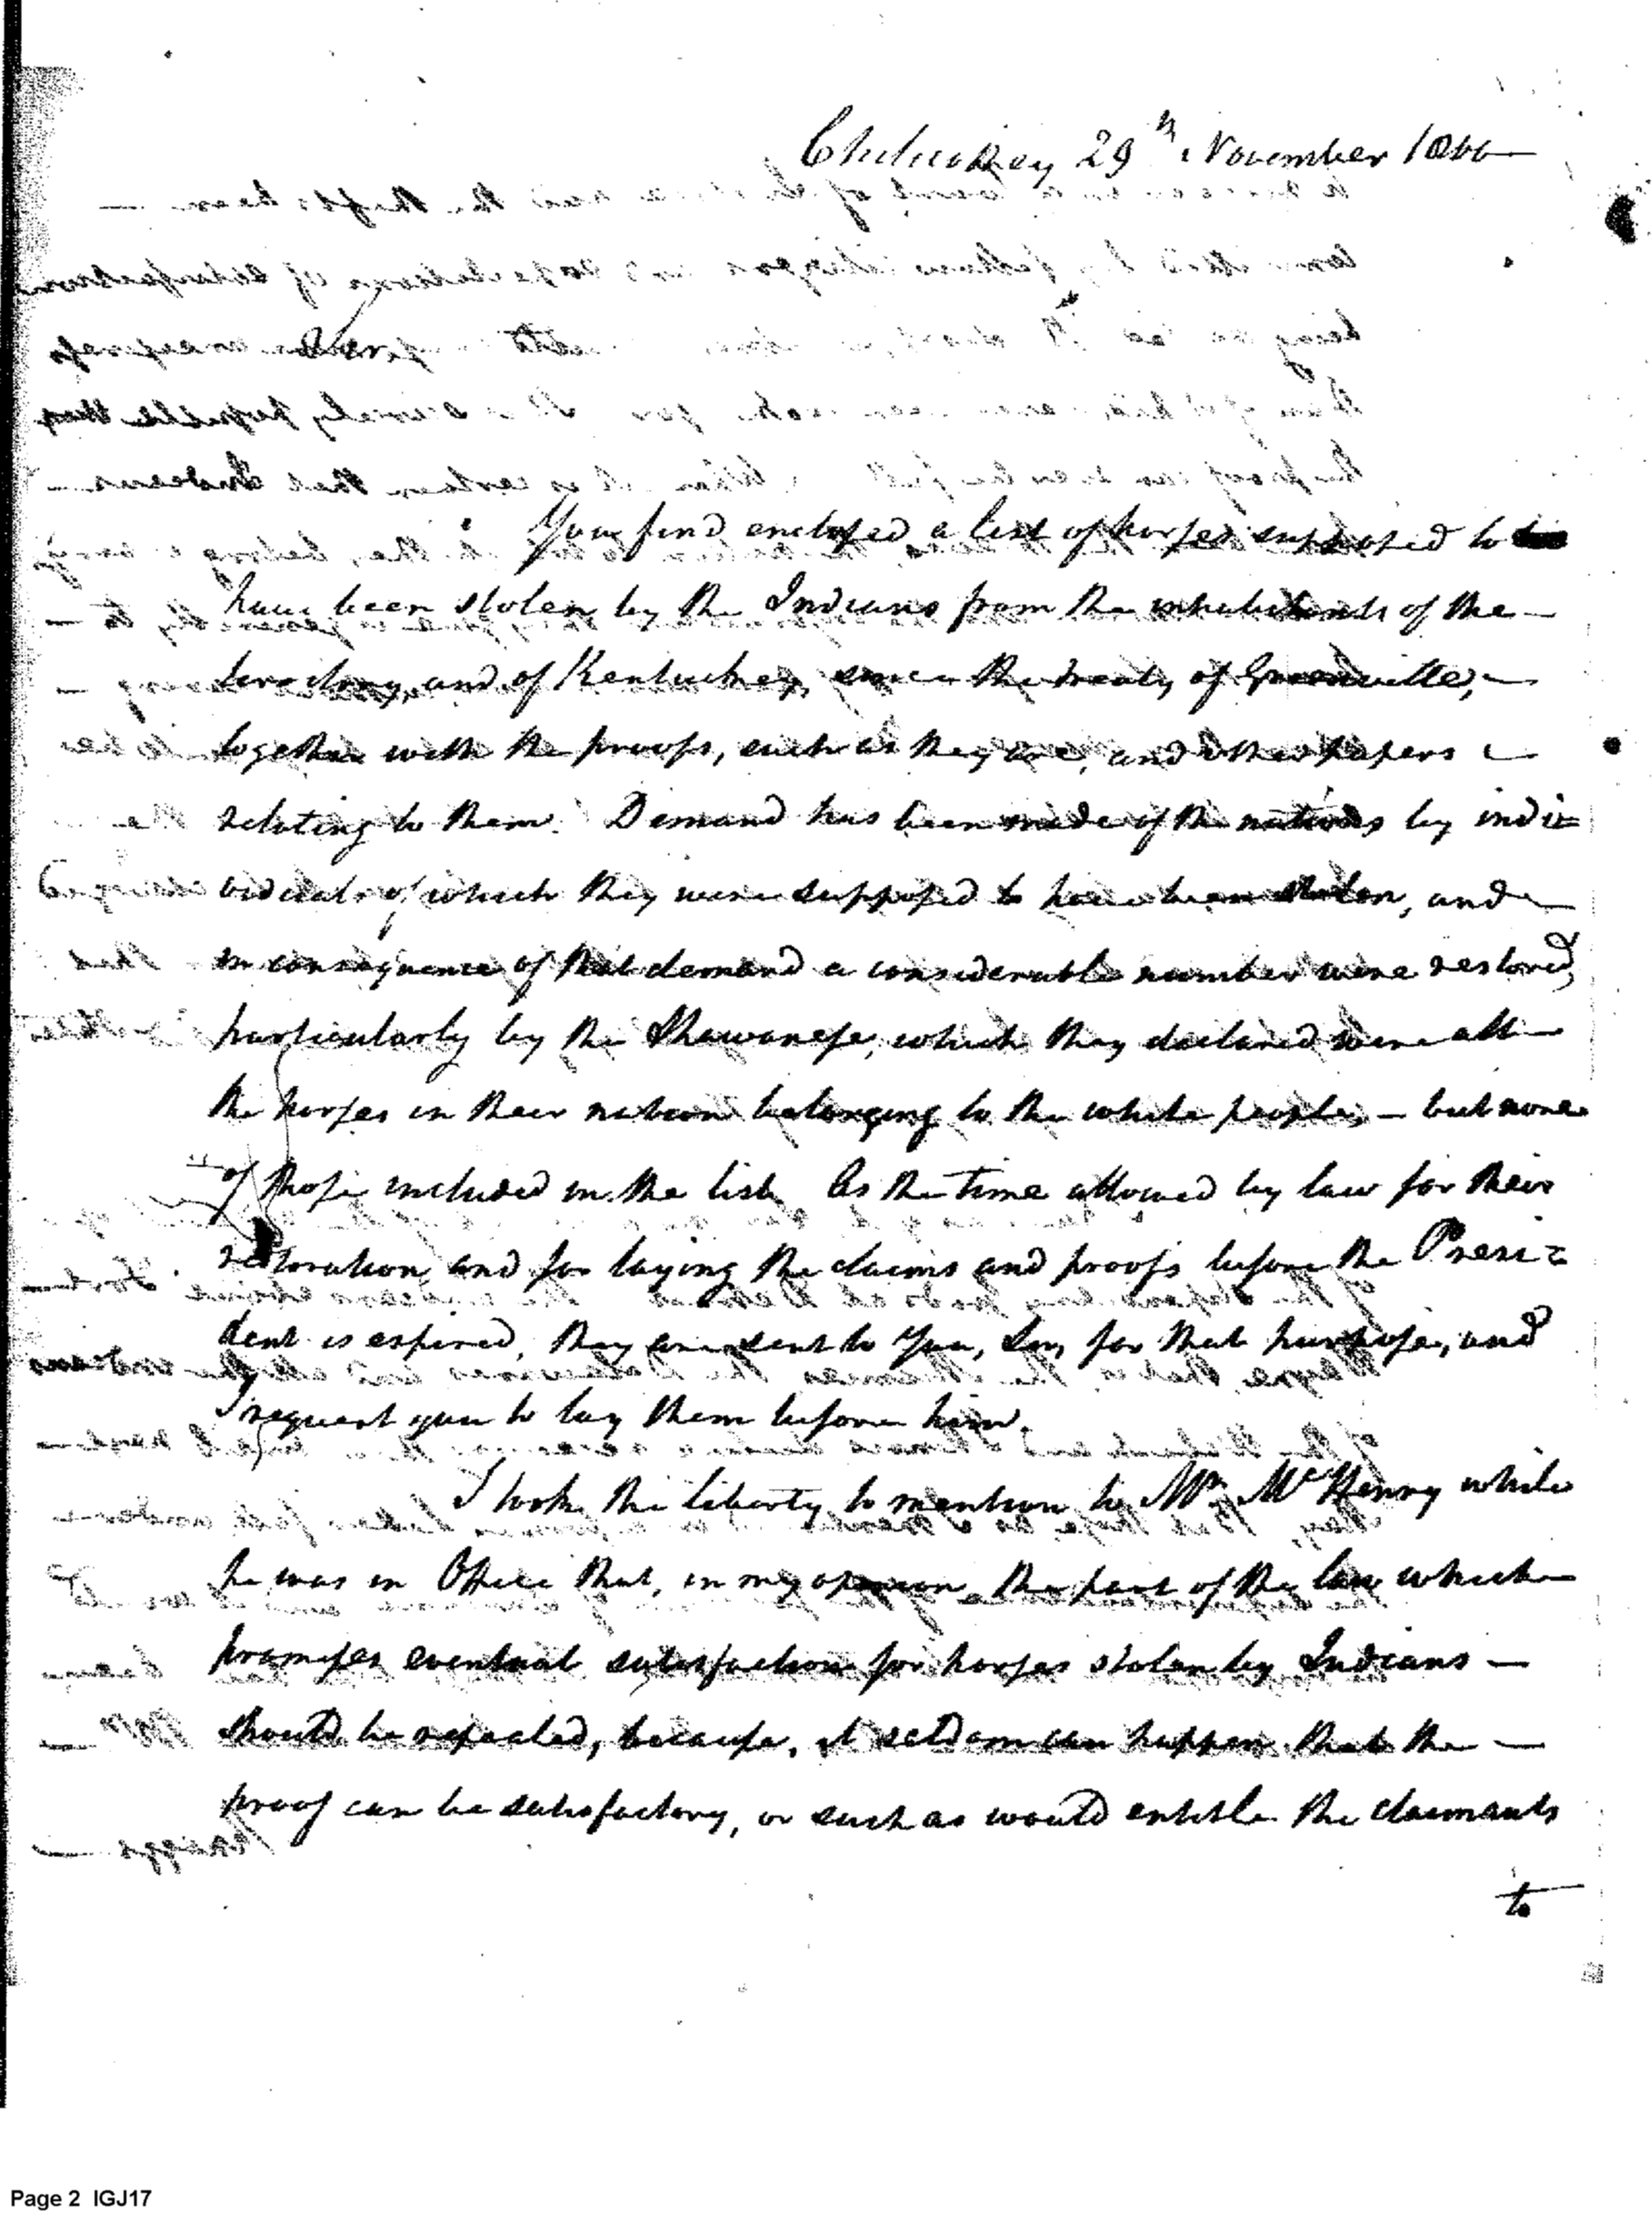 29th November 1800
Sir
You find enclosed a list of horses supposed to
have been stolen by the Indians from the inhabitants of the
territory, and of Kentuckey, since the treaty of Greenville,
together with the proofs, such as they are, and other papers
relating to them. Demand has been made of the nations by indi=
viduals of which they were supposed to have been stolen, and
in consequence of that demand a considerable number were restored,
particularly by the Shawanese, which they declared were all
the horses in their nation belonging to the white people, — but none
of those included in the list. As the time allowed by law for their
restoration, and for laying the claims and proofs before the Presi=
dent is expired, they are sent to you, Sir, for that purpose, and
I request you to lay them before him.
I took the liberty to mention to Mr. McHenry while
he was in Office that, in my opinion, the part of the law which
promises eventual satisfaction for horses stolen by Indians —
should be repealed, because, it seldom can happen that the —
proof can be satisfactory, or such as would entitle the claimants
to
Page 2 IGJ17